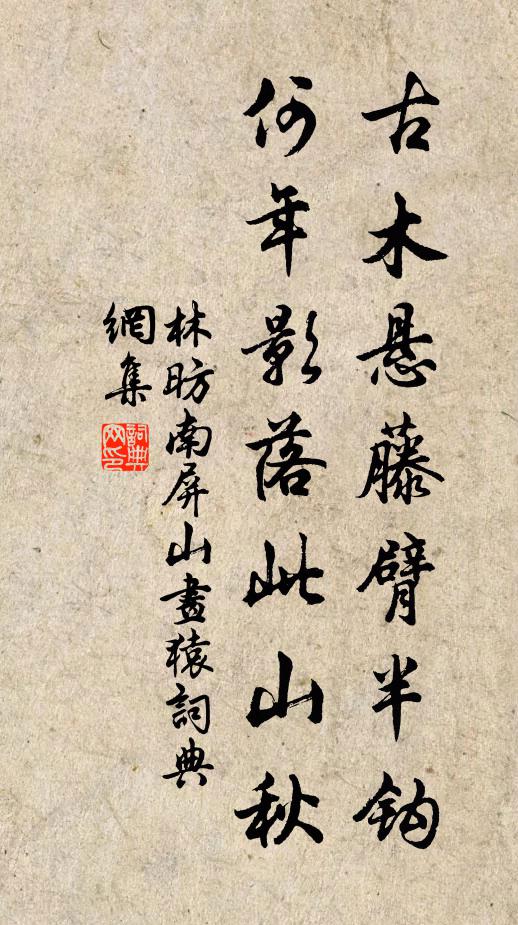 古木悬藤臂半钩
何年影落此山秋
林昉南屏山畫猿詞典
網集
詞典
网印